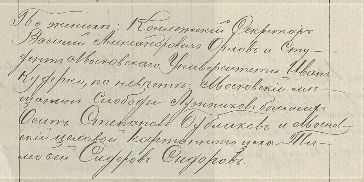 По женихе: Коллежский Секретарь
Василий Александрович Орлов и Сту-
дент Московскаго Университета Иван
Кудерко, по невесте: Московский ме-
щанин Слободы
Осип Степанов и Московс-
кий цеховой цеха Ти-
мофей Сидоров Сидоров.